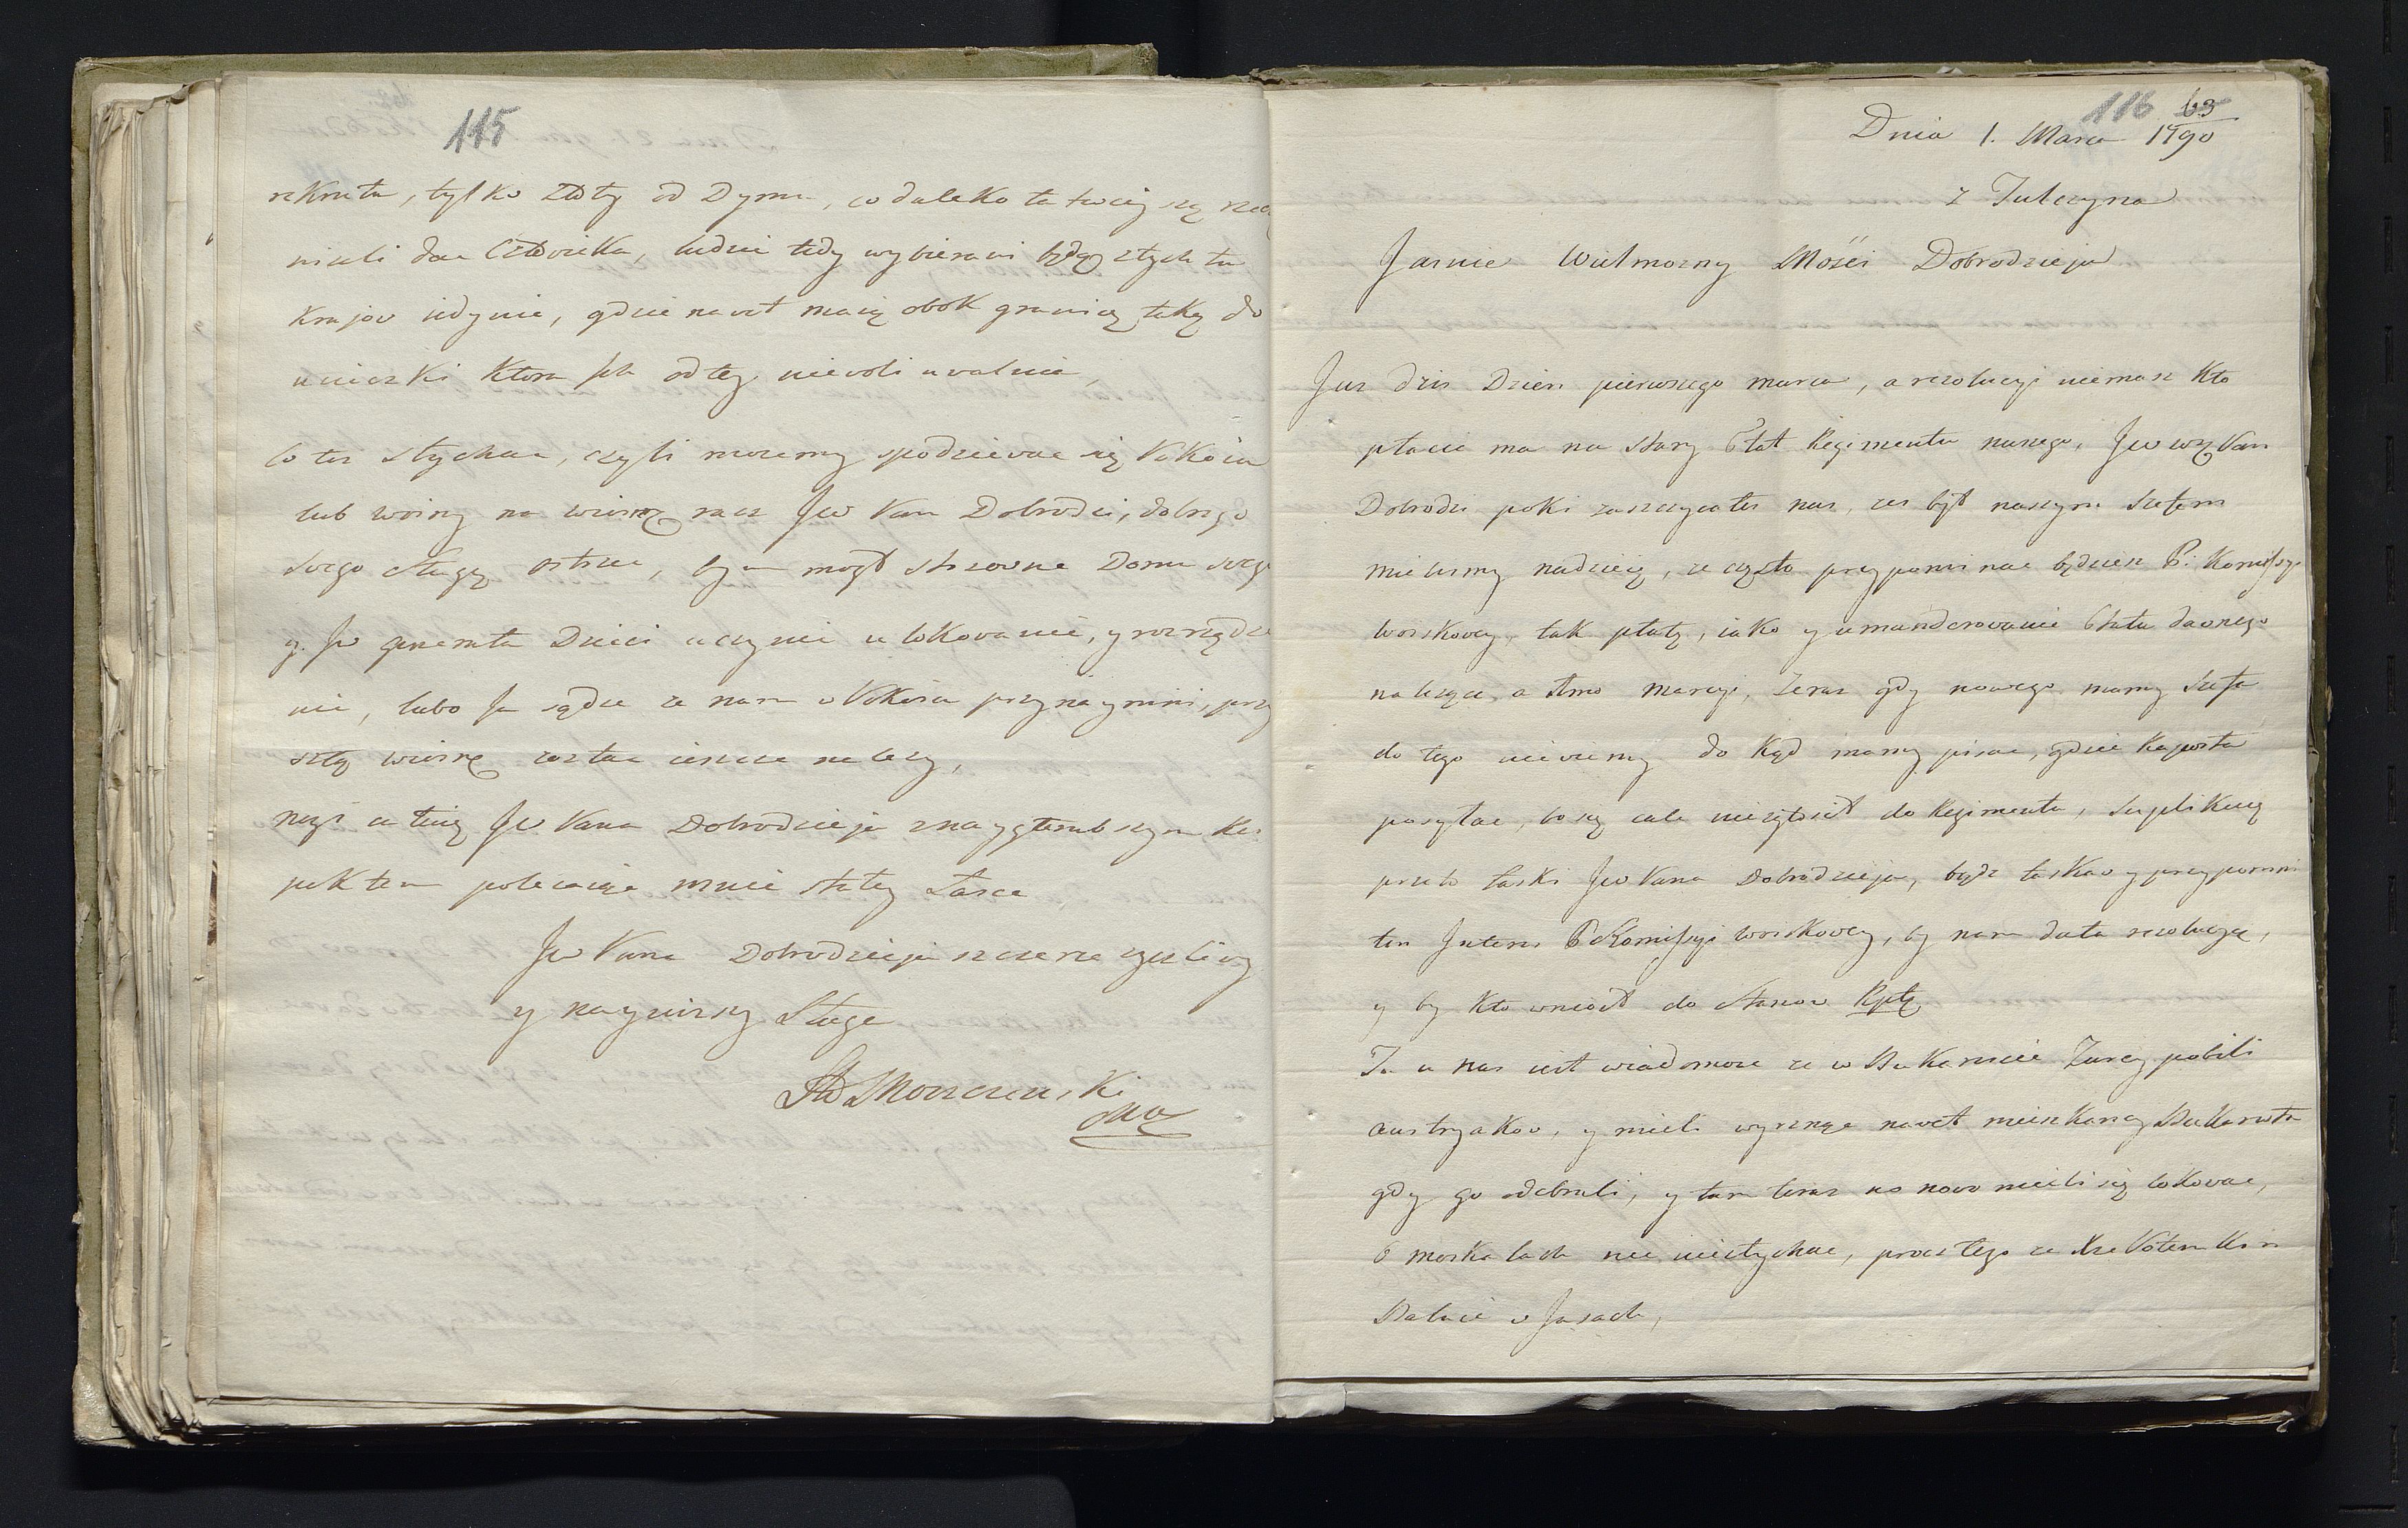 115
rekruta, tylko złoty od Dymu, co daleko łatwiey się
nizeli dac Człowieka, ludzie tedy wybierani będą z tych tu
Krajow iedynie, gdzie nawet maią obok granicę taką do
ucieczki Ktora Jch od tey niewoli uwalnia,
Co tez słychac, czyli mozemy spodziewac się Pokoiu
lub woiny na wiosnę racz Jw Pan Dobrodzi, dobrego
swego sługę ostrzec, bym mogł stosowne Domu swego
y. Jw Generała Dzieci uczynic ulokowanie, y rozrządze
nie, lubo Ja sądze ze nam w Pokoiu przynaymni, przy
szłą wiosnę zostac ieszcze nalezy,
nozi całuię Jw Pana Dobrodzieja z naygłembszym Res
pektem polecaiąc mnie stałey Łasce
Jw Pana Dobrodzieja szczerze zyczliwy
y naynizszy Sługa
Moszczenski
116 63
Dnia 1. Marca 1790
z Tulczyna
Jasnie Wielmozny Mości Dobrodzieju
Juz dzis Dzien pierwszego marca, a rezolucyi niemasz Kto
płacic ma na stary Etat Regimentu naszego, Jw wz Pan
Dobrodzi poki zaszczycałes nas, zes był naszym Szefem
mielismy nadzieię, ze często przypominac będziesz P: Komissyi
woiskowey, tak płatę, iako y umunderowanie Etatu dawnego
nalezące a 1mo Marcji, Teraz gdy nowego mamy Szefa
do tego niewiemy do Kąd mamy pisac, gdzie Raporta
posyłac, bo się cale niezgłosił do Regimentu, Suplikuię
przeto łaski Jw Pana Dobrodzieja, bydz łaskaw y przypomni
ten Jnteres P Komissyi woiskowey, by nam dała rezolucyą,
y by Kto wniosł do Stanow Rptę
Tu u nas iest wiadomosc ze w Bukareszcie Turcy pobili
Austryakow, y mieli wyrznąc nawet mieszkancy Bukaresztu
gdy go odebrali, y tam teraz na nowo mieli się lokowac,
O moskalach nic niesłychac, procz tego ze Xze Potemkin
Baluie w Jasach,